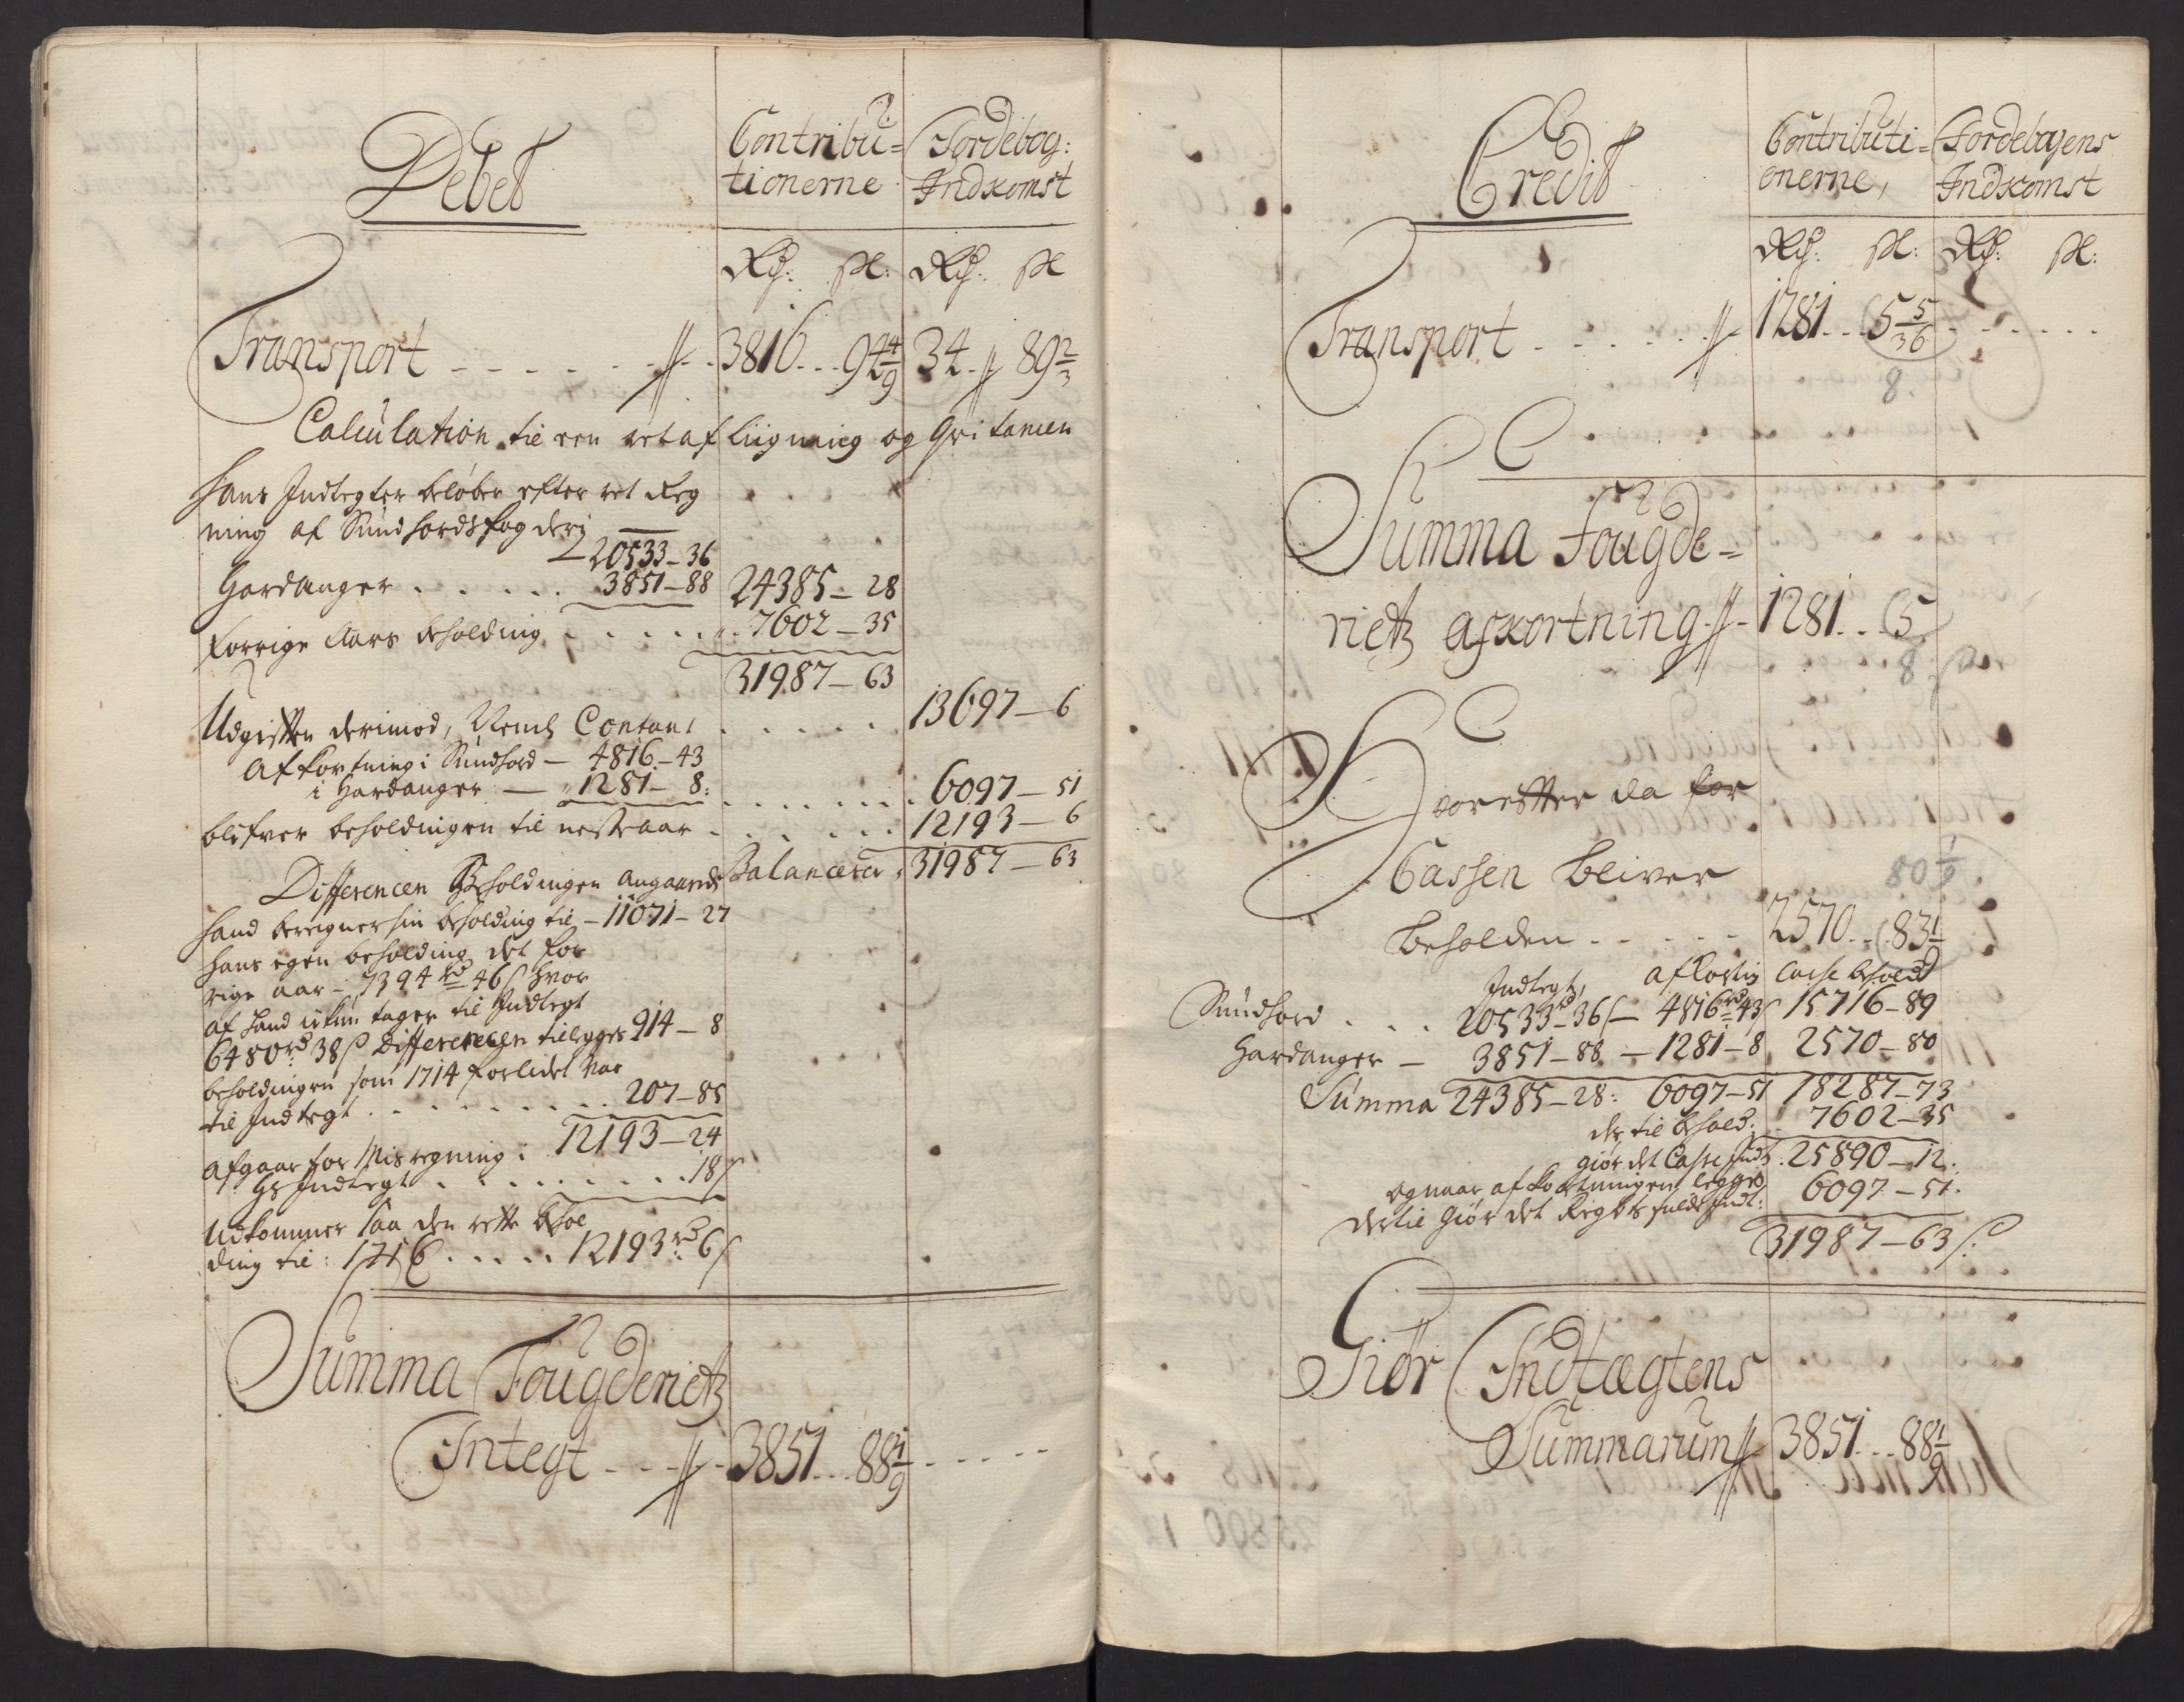 Debet
Contribu=
tionerne
Jordebog:
Indkomst
Rd: sk: Rd: sk
Transport - - - - - 3816 - - 94 4/9 34 89 2/3
Calculation til een ret afliigning og Qvitancen
hans Indtegter beløber efter ret Reg
ning af Sundhords fogderj
20533 - 36
Hardanger . . . . . 3851 - 88 24385 - 28
forrige Aars beholding . . . . . 7602 - 35
31987 - 63
Udgifften derimod, Neml Contant . . . . . 13697 - 6
Afkortning i Sundhord - 4816 - 43
i Hardanger - 1281 - 8: . . . . . 6097 - 51
blifver beholdingen til neste aar . . . . . 12193 - 6
Balancerer 31987 - 63
Differencen Beholdingen angaaende
hand beregner sin beholding til - 11071 - 27
hans egen beholding det for
rige aar - 7394 rd 46 s hvor
af hand ickun tager til Indtegt
6480 rd 38 s Differencen tillegges 914 - 8
beholdingen som 1714 forlidet var
til Indtegt . . . . . 207 - 85
12193 - 24
afgaar for Misregning i
Indtegt . . . . . 18 s
Udkommer saa den rette behol
ding til: 1716 . . . . . 12193 rd 6 s
Summa Fougderietz
Integt - - - 3851 - - 88 1/9 - - - -
Credit
Contributi=
onerne,
Jordebogens
Indkomst
Rd: sk: Rd: sk:
Transport - - - - - 1281 - - 5 5/36 - - - - -
8.
Summa Fougde=
rietz afkortning - 1281 - - 5
8
Hvorefter da for
Cassen bliver
80 1/9
beholden - - - - - 2570 - - 83 1/
Indtegt, afkortn Casse behold
Sundhord . . . 20533 rd - 36 s - 4816 rd 43 s 15716 - 89
Hardanger - 3851 - 88 - 1281 - 8 2570 - 80
Summa 24385 - 28: 6097 - 51 18287 - 73
der til behold: 7602 - 35
giør det Casse Indt. 25890 - 12.
og naar afkortningen legges 6097 - 51.
dertil Giør det Regnsk: fulde Indt:
31987 - 63 s:
Giør Indtægtens
Summarum 3851 - - 88 1/9